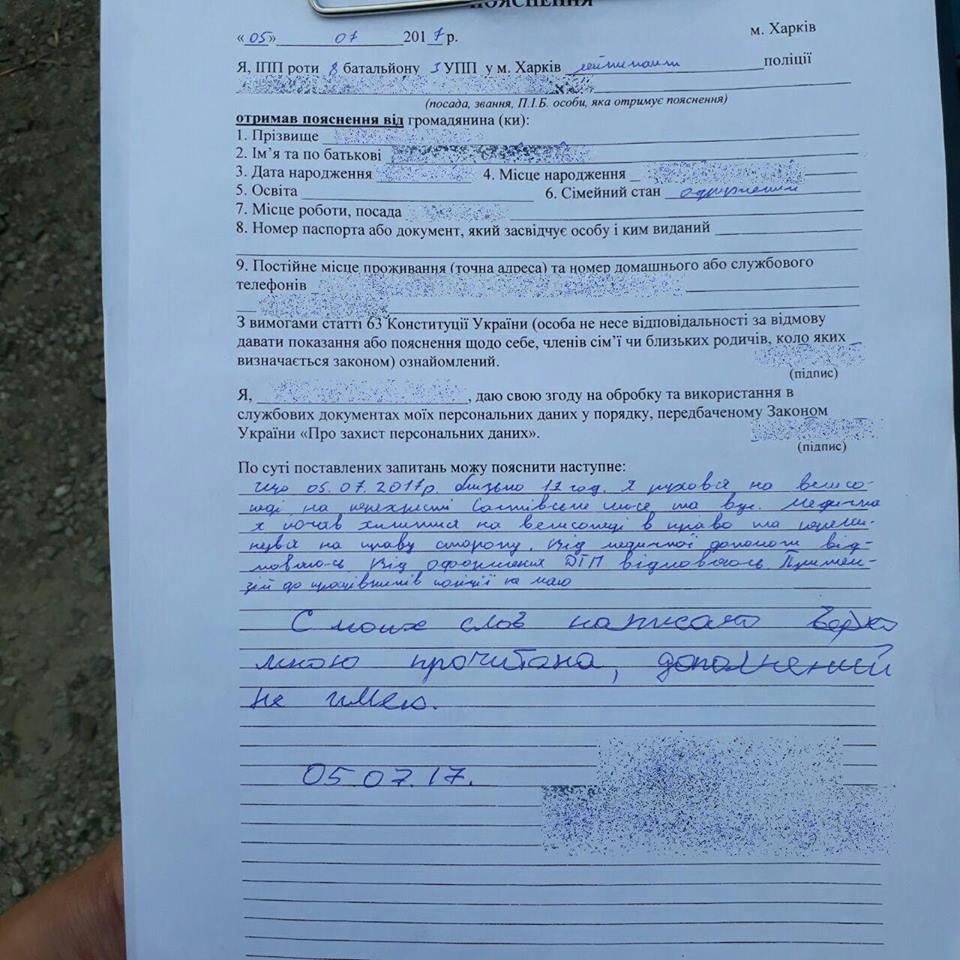 ПОЯСНЕННЯ
«05» 07 2017 р. м. Харків
Я, ІПП роти 8 батальйону 3 УПП у м. Харків лейтенант поліції
(посада, звання, П.І.Б. особи, яка отримує пояснення)
отримав пояснення від громадянина (ки):
1. Прізвище
2. Ім’я та по батькові
3. Дата народження 4. Місце народження
5. Освіта 6. Сімейний стан одружений
7. Місце роботи, посада
8. Номер паспорта або документ, який засвідчує особу і ким виданий
9. Постійне місце проживання (точна адреса) та номер домашнього або службового
телефонів
З вимогами статті 63 Конституції України (особа не несе відповідальності за відмову
давати показання або пояснення щодо себе, членів сім’ї чи близьких родичів, коло яких
визначається законом) ознайомлений.
(підпис)
Я, , даю свою згоду на обробку та використання в
службових документах моїх персональних даних у порядку, передбаченому Законом
України «Про захист персональних даних».
(підпис)
По суті поставлених запитань можу пояснити наступне:
що 05.07.2017р. близько 12 год. я рухався на велоси-
педі на перехресті шосе та вул.
я почав хилитися на велосипеді в право та
на праву сторону. Від медичної допомоги від-
мовляюсь. Від оформлення ДТП відмовляюсь Претен-
зій до працівників поліції не маю
С моих слов написано верно
мною прочитана, дополнений
не имею.
05.07.17.